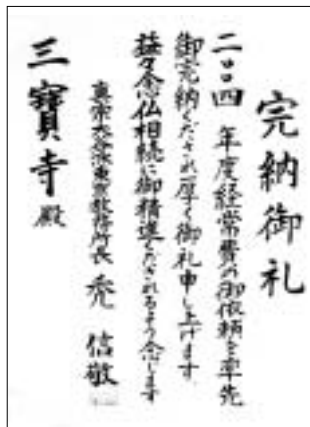 完納御礼
二〇〇四年度経常費の御依頼を率先
御完納くだされ厚く御礼申し上げます
益々念仏相続に御精進くだされるよう念じます
真宗大谷派東京教務所長 禿 信敬
三寶寺殿